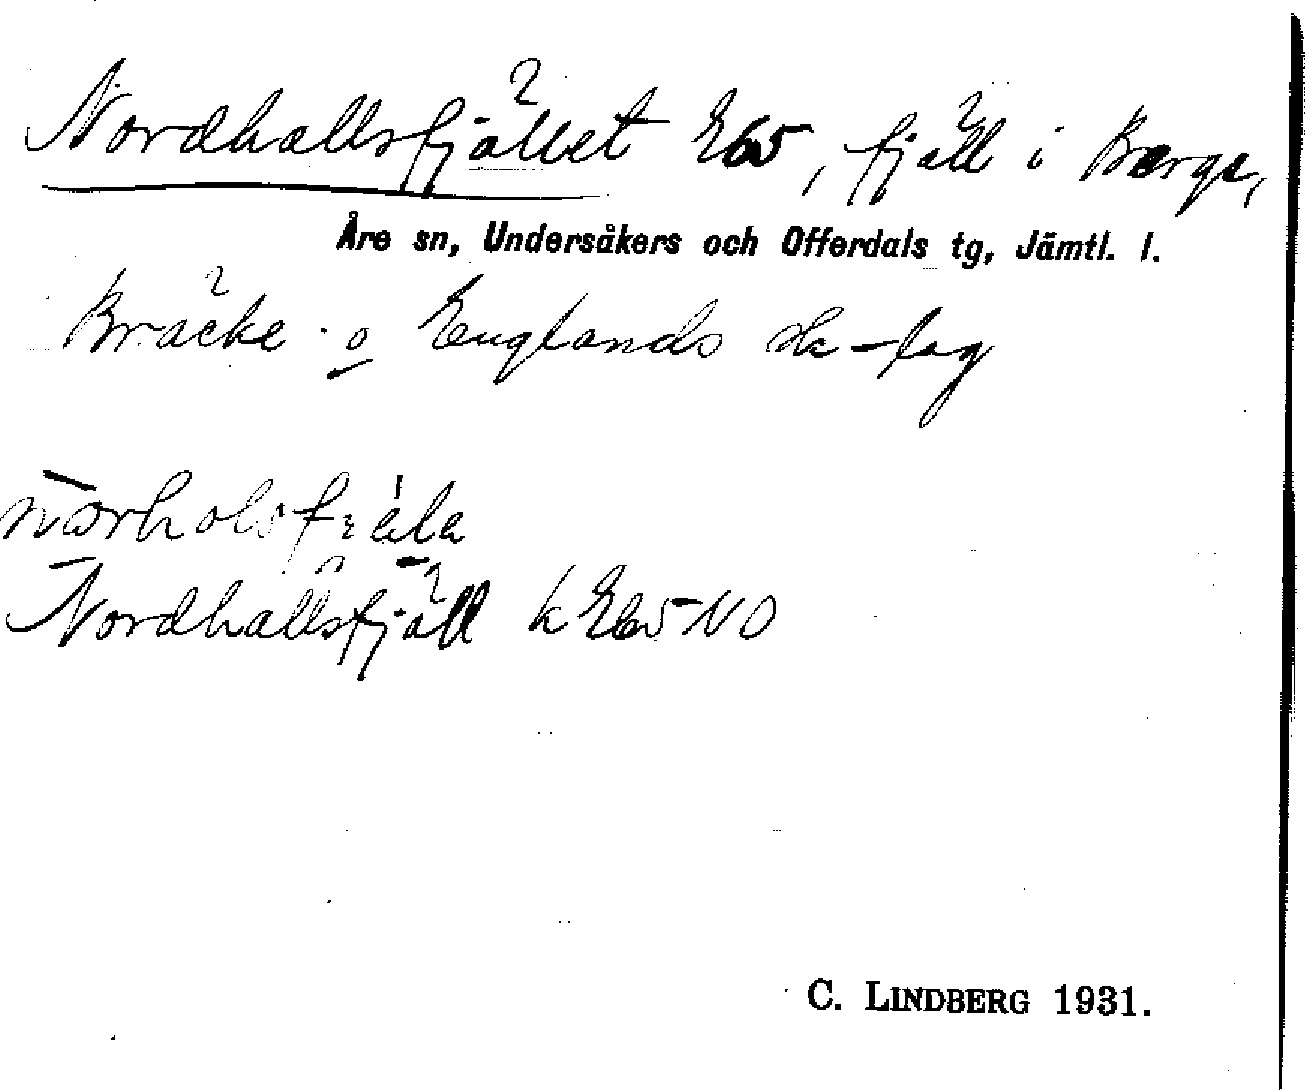 Nordhallsfjället E65, fjäll i Berge,
Åre sn, Undersåkers och Offerdals tg, Jämtl. l.
Bräcke o Englands sk-lag
Nordhallsfjäll k E65 NO
C. LINDBERG 1931.